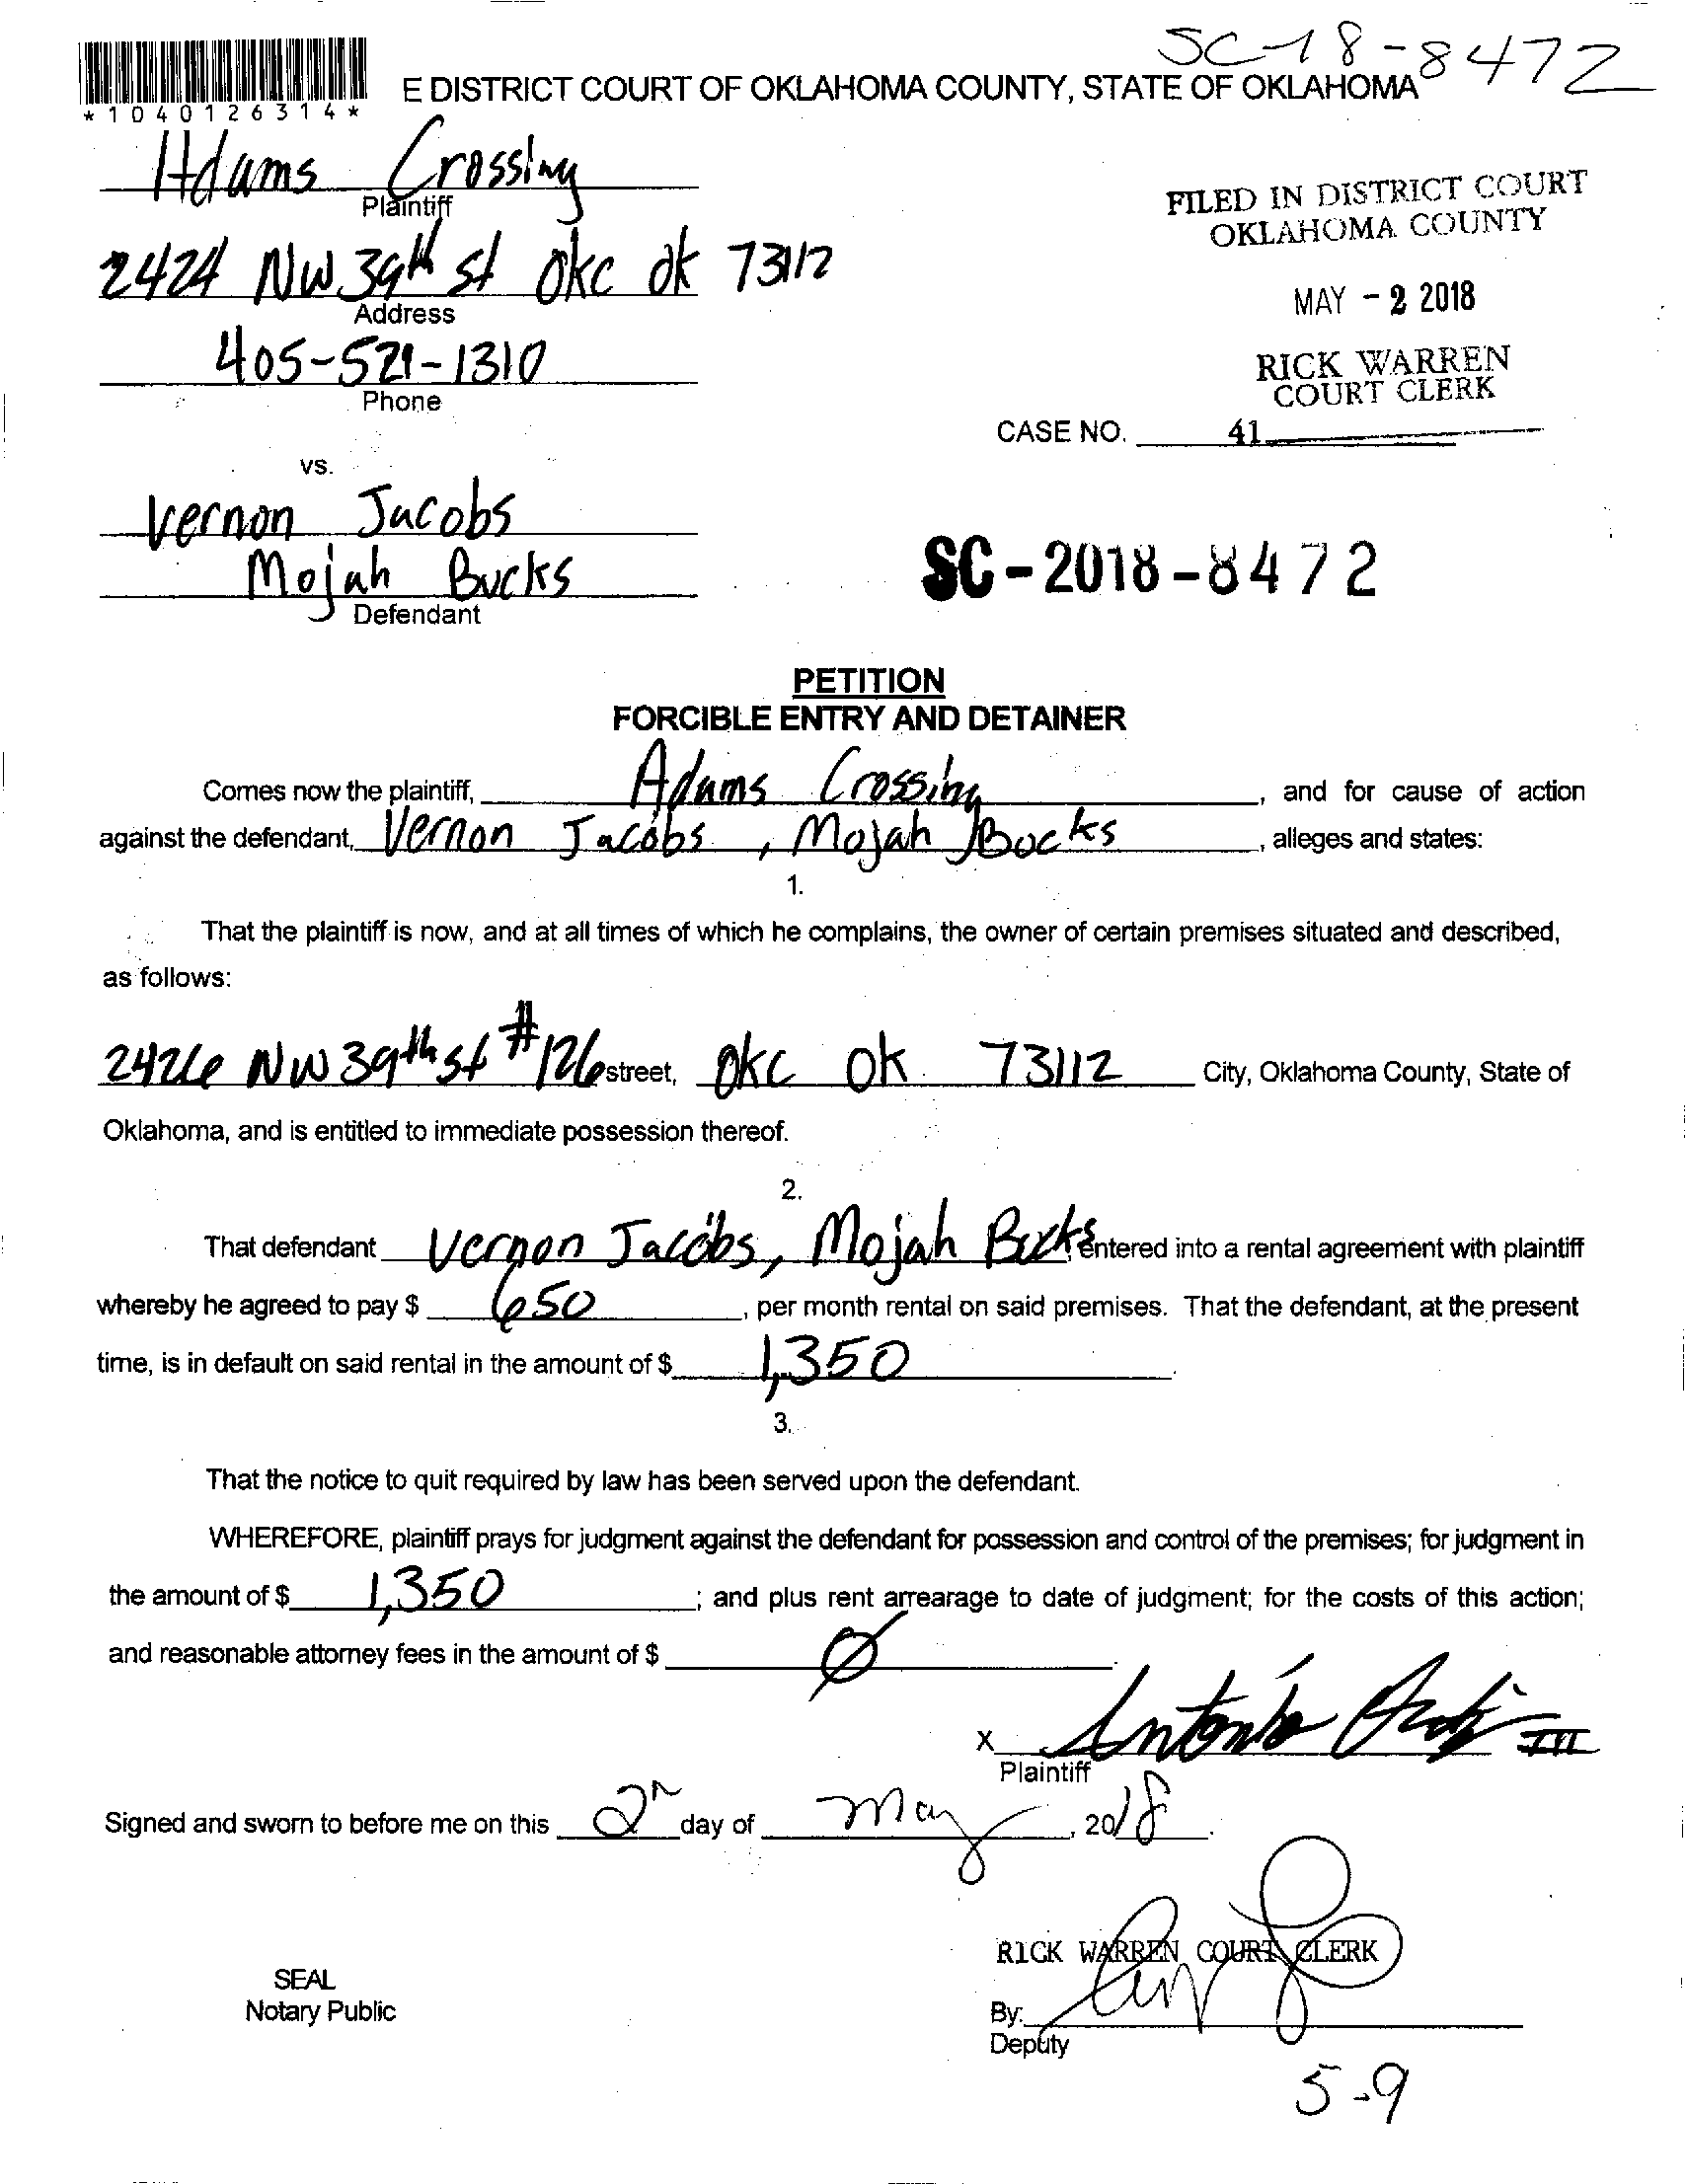 SC-18-8472
*1040126314*
E DISTRICT COURT OF OKLAHOMA COUNTY, STATE OF OKLAHOMA
Adams Crossing
Plaintiff
FILED IN DISTRICT COURT
OKLAHOMA COUNTY
2424 NW 39th st okc ok 73112
Address
MAY - 2 2018
405-521-1310
Phone
RICK WARREN
COURT CLERK
CASE NO. 41
vs.
Vernon Jacobs
Mojah Bucks
Defendant
SC-2018-8472
PETITION
FORCIBLE ENTRY AND DETAINER
Comes now the plaintiff, Adams Crossing, and for cause of action
against the defendant, Vernon Jacobs, Mojah Bucks, alleges and states:
1.
That the plaintiff is now, and at all times of which he complains, the owner of certain premises situated and described,
as follows:
2426 NW 39th st #126 street, okc ok 73112 City, Oklahoma County, State of
Oklahoma, and is entitled to immediate possession thereof.
2.
That defendant Vernon Jacobs, Mojah Bucks entered into a rental agreement with plaintiff
whereby he agreed to pay $ 650, per month rental on said premises. That the defendant, at the present
time, is in default on said rental in the amount of $ 1,350.
3.
That the notice to quit required by law has been served upon the defendant.
WHEREFORE, plaintiff prays for judgment against the defendant for possession and control of the premises; for judgment in
the amount of $ 1,350; and plus rent arrearage to date of judgment; for the costs of this action;
and reasonable attorney fees in the amount of $ Ø.
X Antonio III
Plaintiff
Signed and sworn to before me on this 2n day of May, 2018.
RICK WARREN COURT CLERK
SEAL
Notary Public
By:
Deputy
5-9